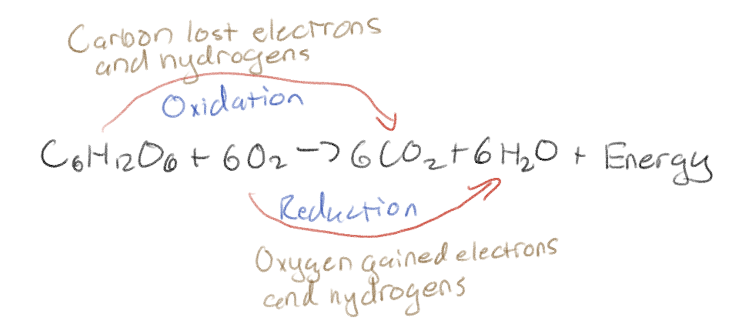 Carbon lost electrons
and hydrogens
Oxidation
C₆H₁₂O₆ + 6O₂ → 6CO₂ + 6H₂O + Energy
Reduction
Oxygen gained electrons
and hydrogens